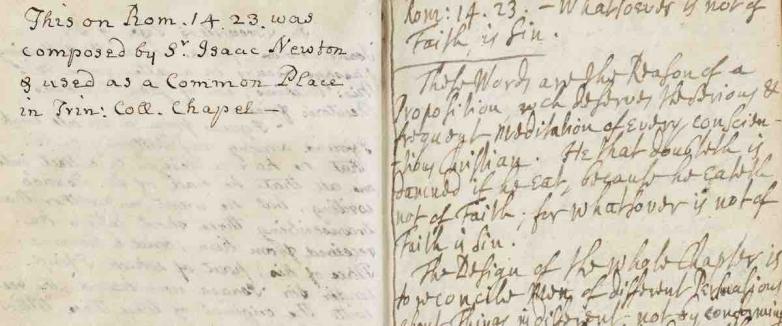 This on Rom. 14. 23. was
composed by Sr. Isaac Newton
& used as a Common Place
in Trin: Coll. Chapel —
Rom: 14. 23. – Whatsoever is not of
Faith, is Sin.
These Words are the Reason of a
Proposition, wch deserves the serious &
frequent Meditation of every conscien-
tious Christian. He that doubteth is
damned if he eat, because he eateth
not of Faith; for whatsoever is not of
Faith is Sin.
The Design of the whole Chapter is
to reconcile Men, of different Persuasions
about Things indifferent – not by